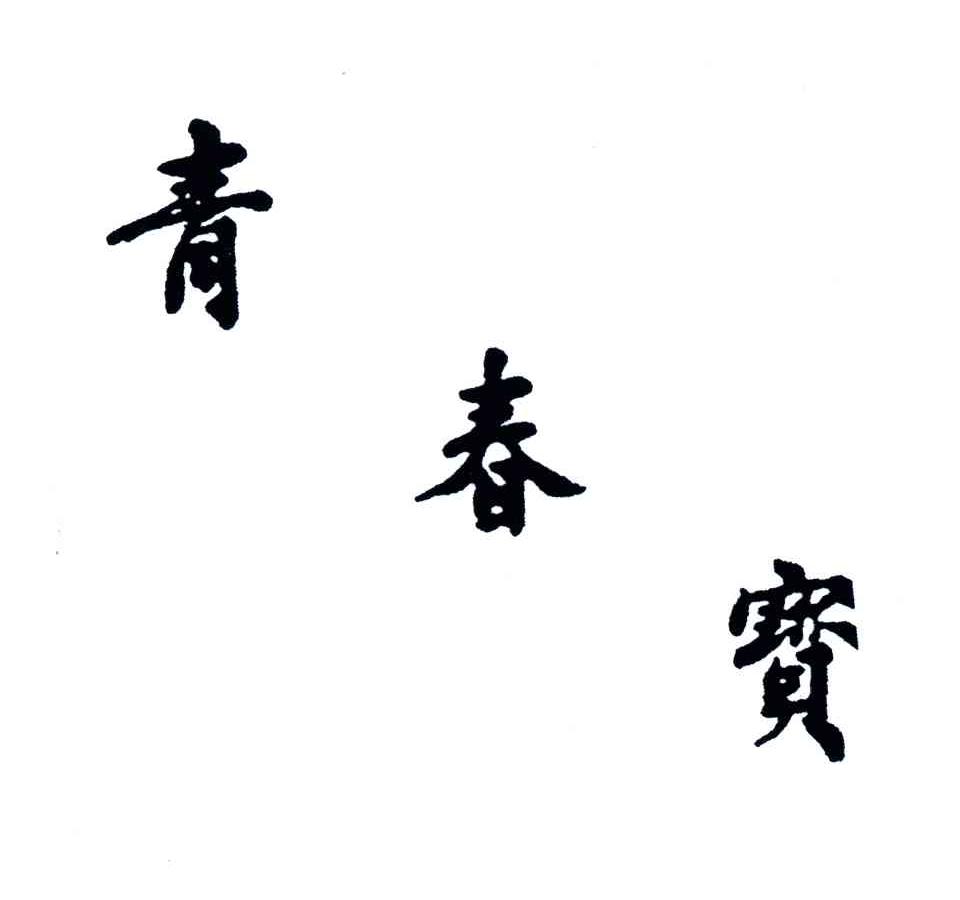 青春寶